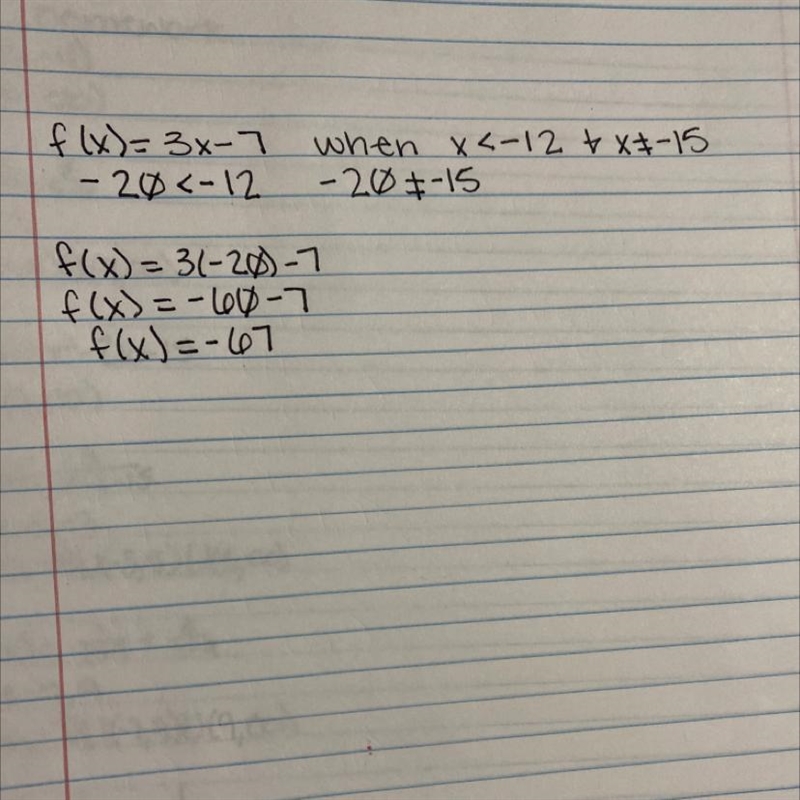 f(x) = 3x - 7 when x < -12 & x ≠ -15
-20 < -12 -20 ≠ -15
f(x) = 3(-20) - 7
f(x) = -60 - 7
f(x) = -67